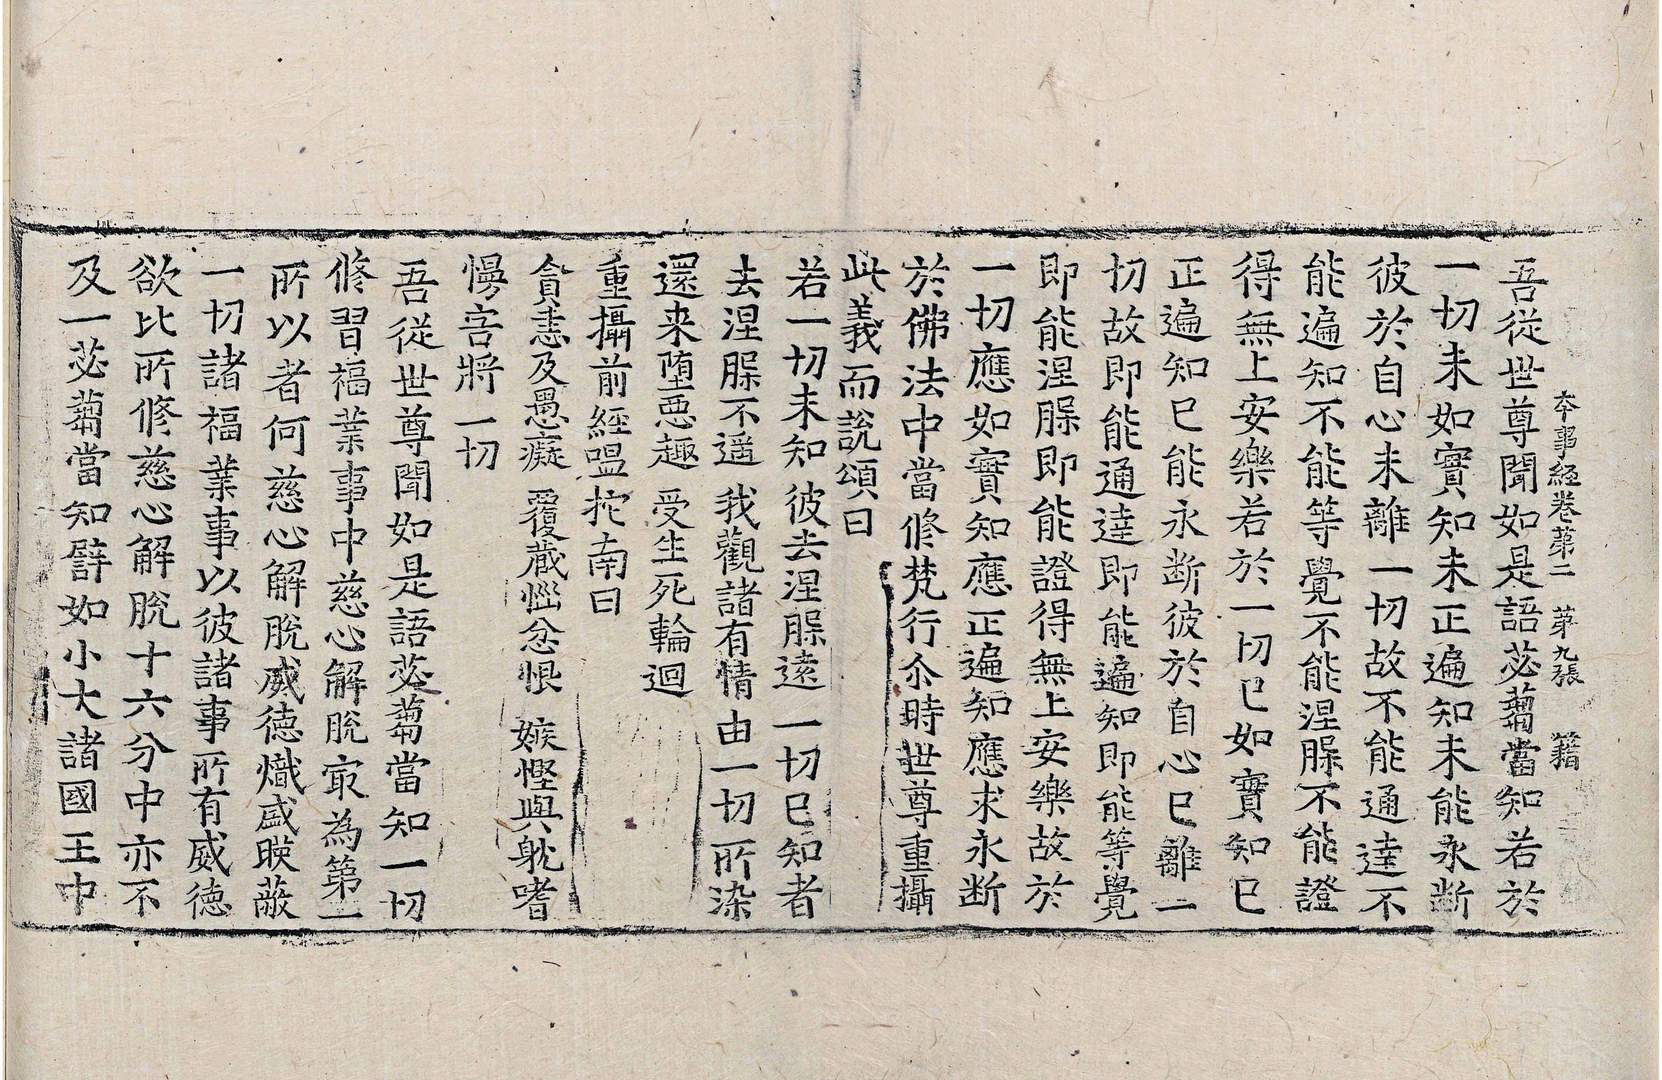 本事経卷第二 第九張 籍
吾從世尊聞如是語苾蒭當知若於
一切未如實知未正遍知未能永断
彼於自心未離一切故不能通達不
能遍知不能等覺不能涅𦡱不能證
得無上安樂若於一切已如實知已
正遍知已能永断彼於自心已離一
切故即能通達即能遍知即能等覺
即能涅𦡱即能證得無上安樂故於
一切應如實知應正遍知應求永断
於佛法中當修梵行尒時世尊重攝
此義而說頌曰
若一切未知 彼去涅𦡱遠 一切已知者
去涅𦡱不遥 我觀諸有情 由一切所染
還来堕惡趣 受生死輪迴
重攝前經嗢拕南曰
貪恚及愚癡 覆藏惱忿恨 嫉慳與躭嗜
慢害將一切
吾從世尊聞如是語苾蒭當知一切
修習福業事中慈心解脫㝡為第一
所以者何慈心解脫威德熾盛暎蔽
一切諸福業事以彼諸事所有威德
欲比所修慈心解脫十六分中亦不
及一苾蒭當知譬如小大諸國王中